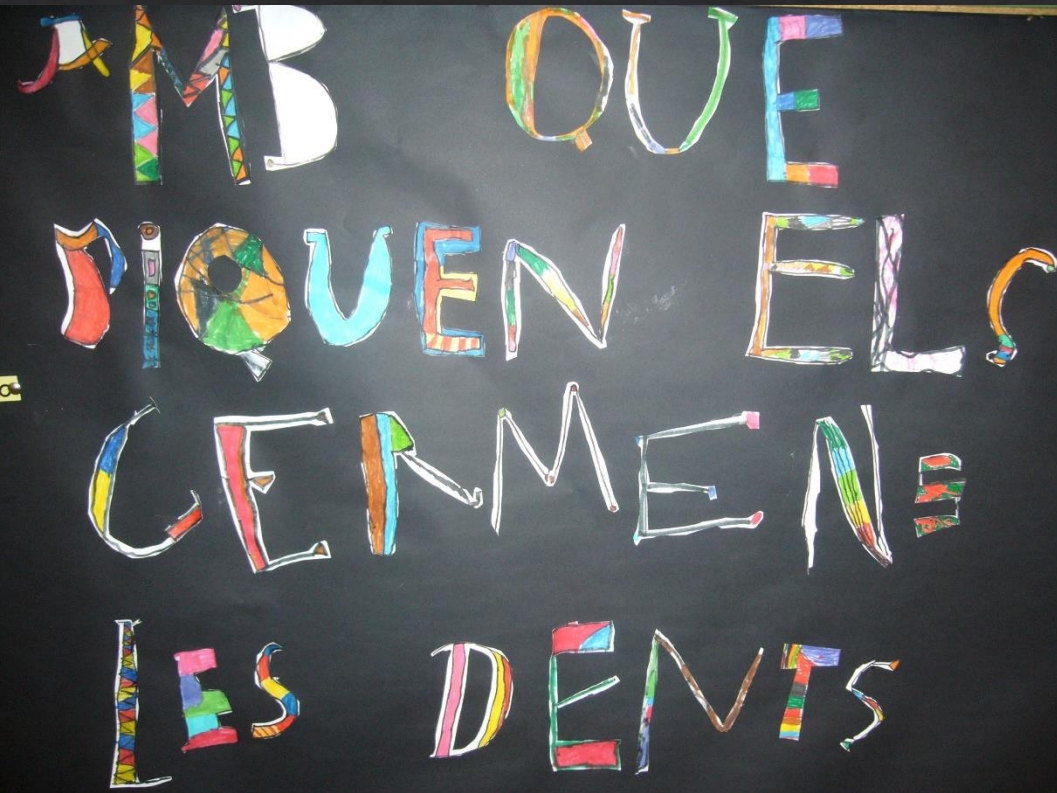 AMB QUE
PIQUEN ELS
GERMENS
LES DENTS